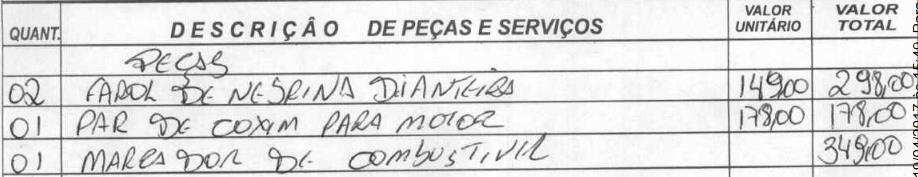 QUANT. DESCRIÇÃO DE PEÇAS E SERVIÇOS VALOR UNITÁRIO VALOR TOTAL
PEÇAS
02 FAROL DE NESRINA DIANTEIRA 149,00 298,00
01 PAR DE COXIM PARA MOTOR 178,00 178,00
01 MARCADOR DE COMBUSTIVIL 349,00